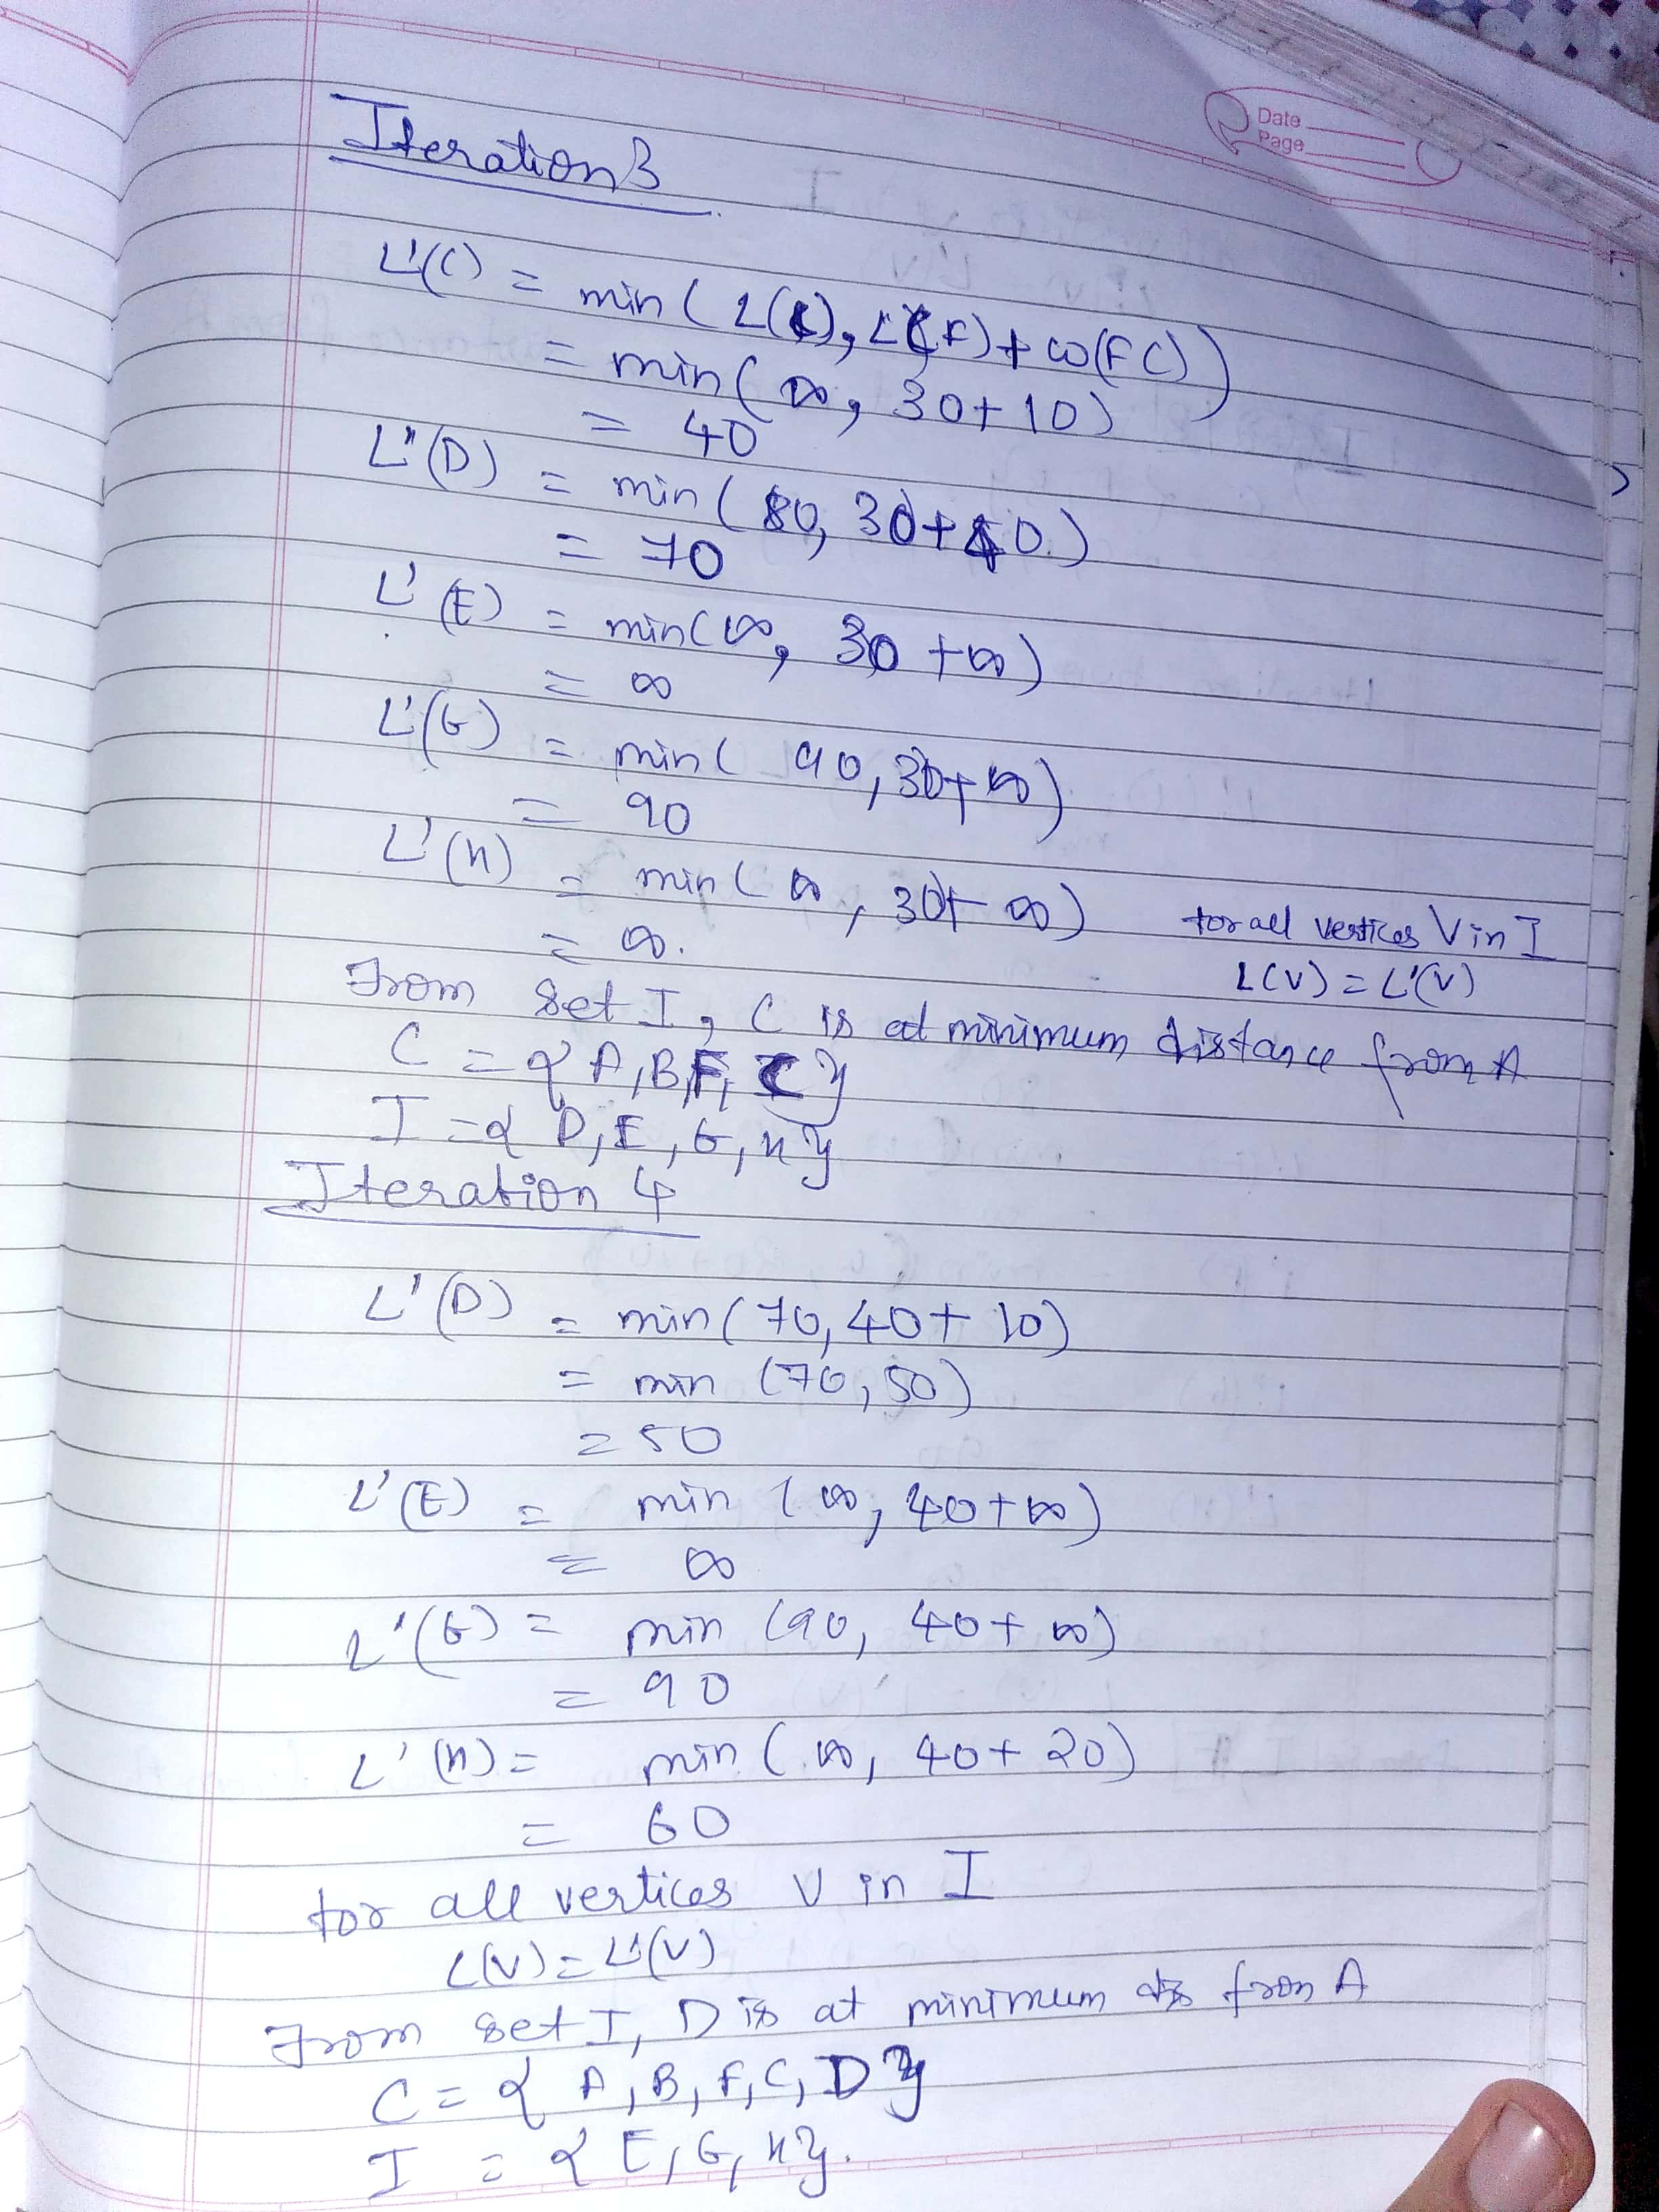 Date
Page
Iteration 3
L'(C) = min ( L(C), L(F) + w(FC) )
= min ( ∞, 30 + 10 )
= 40
L'(D) = min ( 80, 30 + 40 )
= 70
L'(E) = min ( ∞, 30 + ∞ )
= ∞
L'(G) = min ( 90, 30 + ∞ )
= 90
L'(H) = min ( ∞, 30 + ∞ )
= ∞.
for all vertices V in I
L(V) = L'(V)
From set I, C is at minimum distance from A
C = { A, B, F, C }
I = { D, E, G, H }
Iteration 4
L'(D) = min ( 70, 40 + 10 )
= min ( 70, 50 )
= 50
L'(E) = min ( ∞, 40 + ∞ )
= ∞
L'(G) = min ( 90, 40 + ∞ )
= 90
L'(H) = min ( ∞, 40 + 20 )
= 60
for all vertices V in I
L(V) = L'(V)
From set I, D is at minimum dis from A
C = { A, B, F, C, D }
I = { E, G, H }.